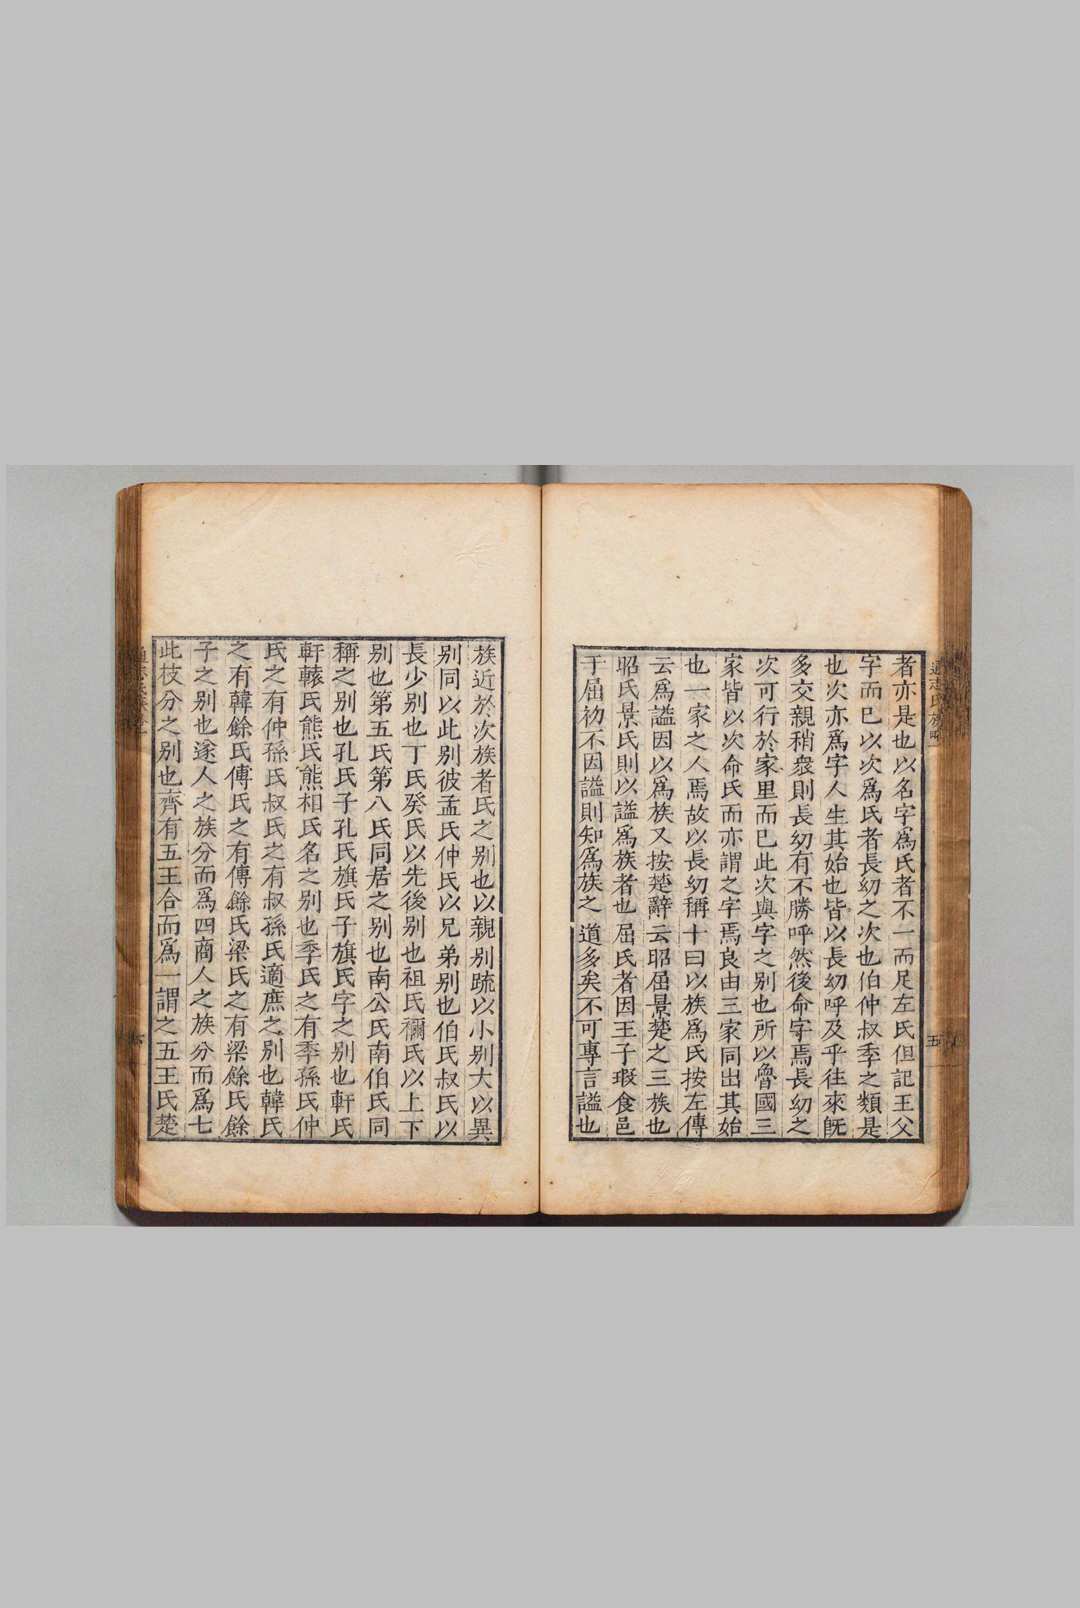 者亦是也以名字爲氏者不一而足左氏但記王父
字而已以次爲氏者長幼之次也伯仲叔季之類是
也次亦爲字人生其始也皆以長幼呼及乎往來旣
多交親稍衆則長幼有不勝呼然後命字焉長幼之
次可行於家里而已此次與字之别也所以魯國三
家皆以次命氏而亦謂之字焉良由三家同出其始
也一家之人焉故以長幼稱十曰以族爲氏按左傳
云爲謚因以爲族又按楚辭云昭屈景楚之三族也
昭氏景氏則以謚爲族者也屈氏者因王子瑕食邑
于屈初不因謚則知爲族之道多矣不可專言謚也
通志氏族略一
五
族近於次族者氏之别也以親别疏以小别大以異
别同以此别彼孟氏仲氏以兄弟别也伯氏叔氏以
長少别也丁氏癸氏以先後别也祖氏禰氏以上下
别也第五氏第八氏同居之别也南公氏南伯氏同
稱之别也孔氏子孔氏旗氏子旗氏字之别也軒氏
軒轅氏熊氏熊相氏名之别也季氏之有季孫氏仲
氏之有仲孫氏叔氏之有叔孫氏適庶之别也韓氏
之有韓餘氏傅氏之有傅餘氏梁氏之有梁餘氏餘
子之别也遂人之族分而爲四商人之族分而爲七
此枝分之别也齊有五王合而爲一謂之五王氏楚